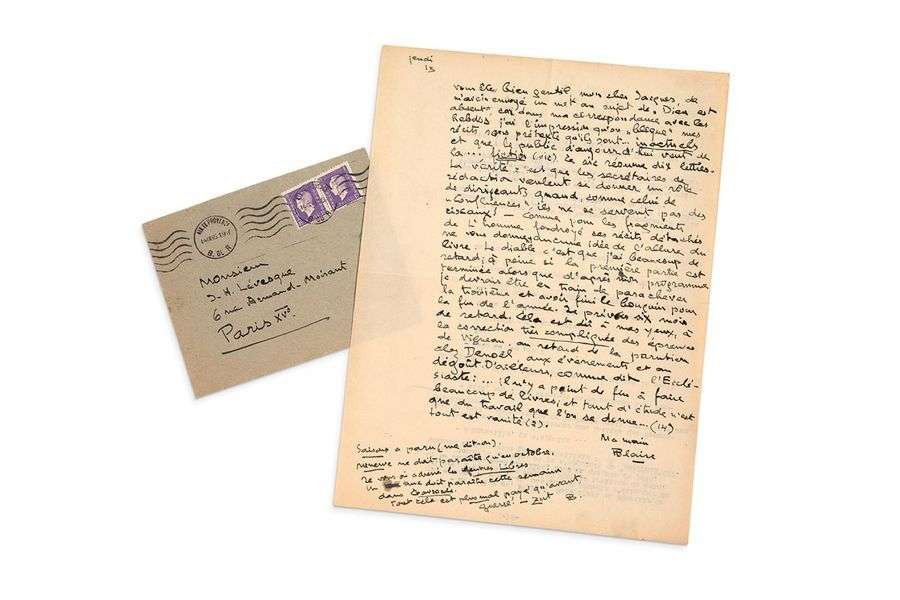 Monsieur
J.-H. Lévesque
6 rue Armand-Moisant
Paris XVe
jeudi
13
vous êtes bien gentil, mon cher Jacques, de
m'avoir envoyé un mot au sujet de "Dieu est
absent" car dans ma correspondance avec les
hebdos j'ai l'impression qu'on mes
récits sous prétexte qu'ils sont... inactuels
et que le public d'aujourd'hui veut de
la... fiction (sic) Je résume dix lettres.
La vérité c'est que les secrétaires de
rédaction veulent se donner un rôle
de dirigeants quand, comme celui de
"Confluences", ils ne se servent pas des
ciseaux! — Comme pour les fragments
de L'homme foudroyé ces récits détachés
ne vous donnent aucune idée de l'allure du
livre. Le diable c'est que j'ai beaucoup de
retard; à peine si la première partie est
terminée alors que d'après mon programme
je devrais être en train de parachever
la troisième et avoir fini le bouquin pour
la fin de l'année. Je prévois six mois
de retard. Cela est dû à mes yeux, à
la correction très compliquée des épreuves
de Vigneau au retard de la parution
chez Denoël aux événements et au
dégoût. D'ailleurs, comme dit l'Ecclé-
siaste: ... il n'y a point de fin à faire
beaucoup de livres, et tant d'étude n'est
que du travail que l'on se donne... (14)
tout est vanité (2).
Ma main
Blaise
Saisons a paru (me dit-on).
ne doit paraître qu'en octobre.
Je vous ai adressé les Lettres Libres
un ane doit paraître cette semaine
dans
Tout cela est plus mal payé qu'avant
guerre. — Zut B.